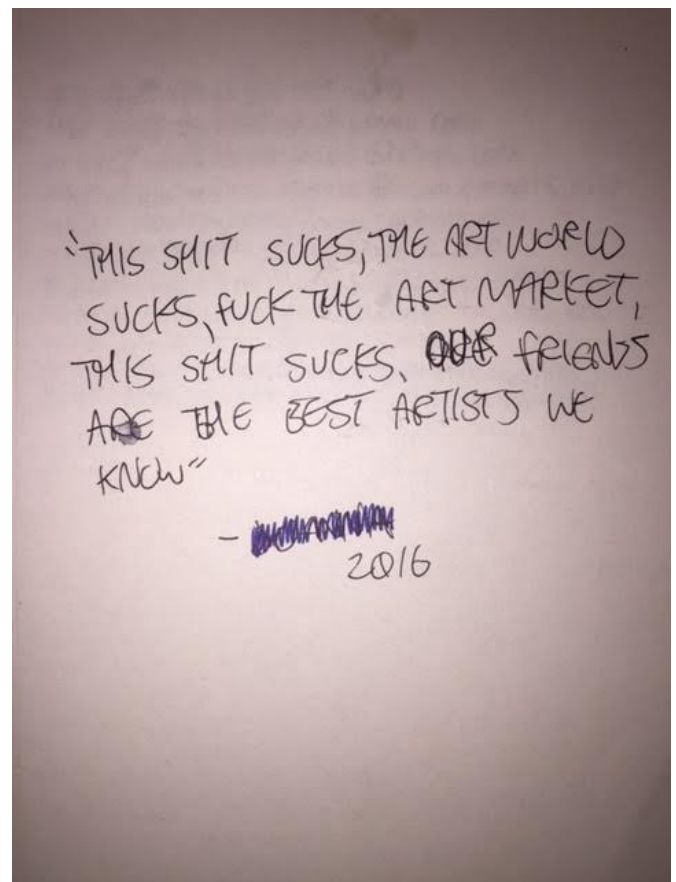 "THIS SHIT SUCKS, THE ART WORLD
SUCKS, FUCK THE ART MARKET,
THIS SHIT SUCKS. OUR FRIENDS
ARE THE BEST ARTISTS WE
KNOW"
-
2016